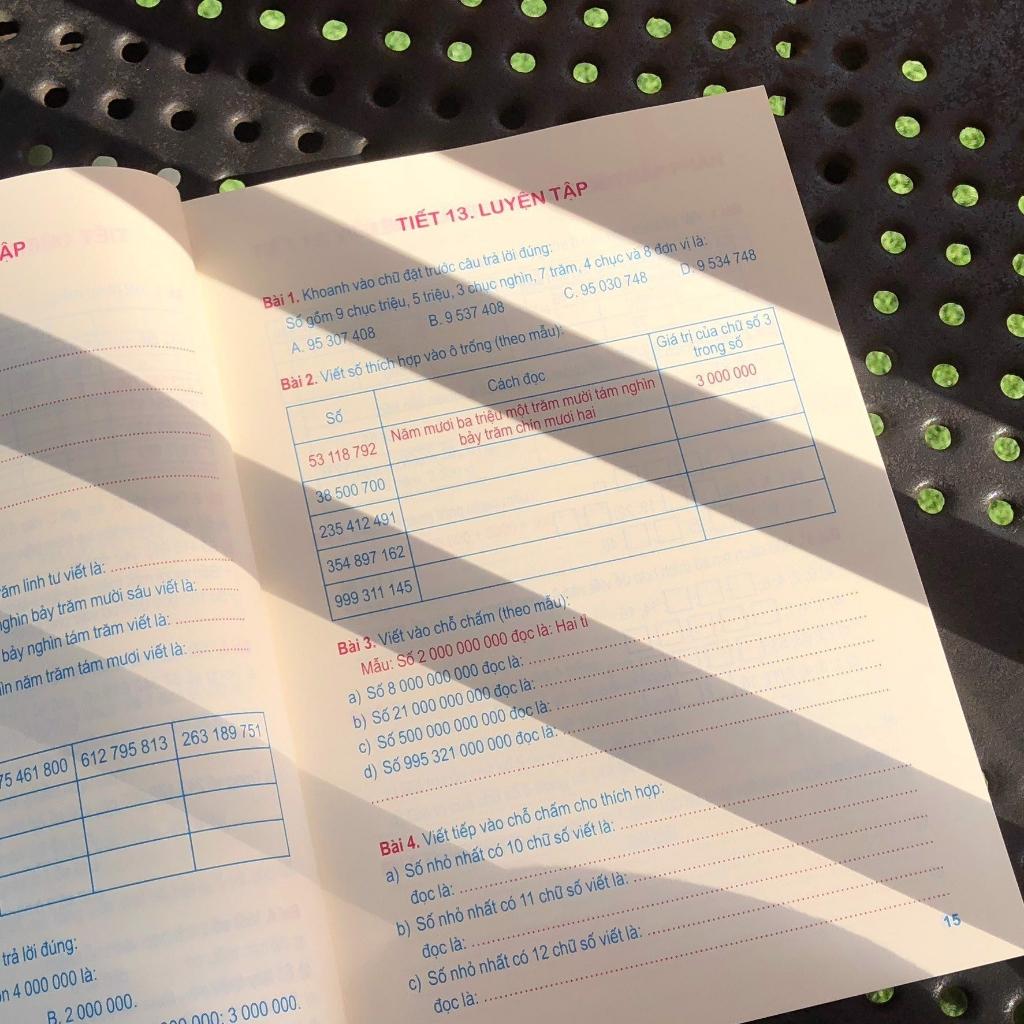 ẬP
linh tư viết là:
bảy trăm mười sáu viết là:
bảy nghìn tám trăm viết là:
năm trăm tám mươi viết là:
75 461 800 612 795 813 263 189 751
trả lời đúng:
4 000 000 là:
B. 2 000 000.
3 000 000.
TIẾT 13. LUYỆN TẬP
Bài 1. Khoanh vào chữ đặt trước câu trả lời đúng:
Số gồm 9 chục triệu, 5 triệu, 3 chục nghìn, 7 trăm, 4 chục và 8 đơn vị là:
A. 95 307 408 B. 9 537 408 C. 95 030 748 D. 9 534 748
Bài 2. Viết số thích hợp vào ô trống (theo mẫu):
Số Cách đọc Giá trị của chữ số 3
trong số
53 118 792 Năm mươi ba triệu một trăm mười tám nghìn 3 000 000
bảy trăm chín mươi hai
38 500 700
235 412 491
354 897 162
999 311 145
Bài 3. Viết vào chỗ chấm (theo mẫu):
Mẫu: Số 2 000 000 000 đọc là: Hai tỉ
a) Số 8 000 000 000 đọc là:
b) Số 21 000 000 000 đọc là:
c) Số 500 000 000 000 đọc là:
d) Số 995 321 000 000 đọc là:
Bài 4. Viết tiếp vào chỗ chấm cho thích hợp:
a) Số nhỏ nhất có 10 chữ số viết là:
đọc là:
b) Số nhỏ nhất có 11 chữ số viết là:
đọc là:
c) Số nhỏ nhất có 12 chữ số viết là:
đọc là:
15